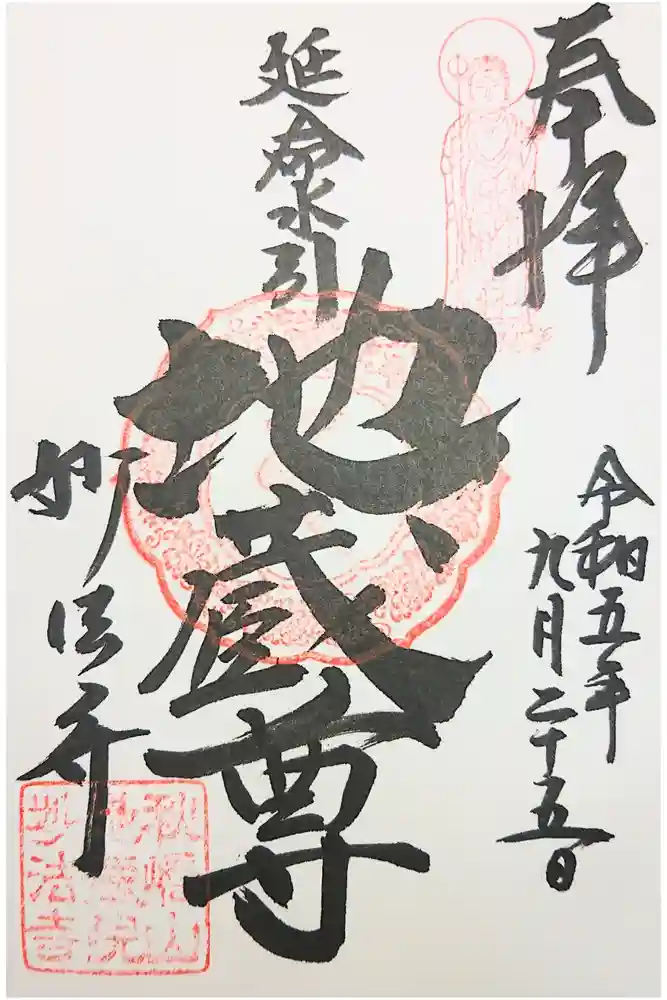 奉拝
令和五年
九月二十五日
延命水引
地蔵尊
妙法寺
秋幡山
地蔵院
妙法寺